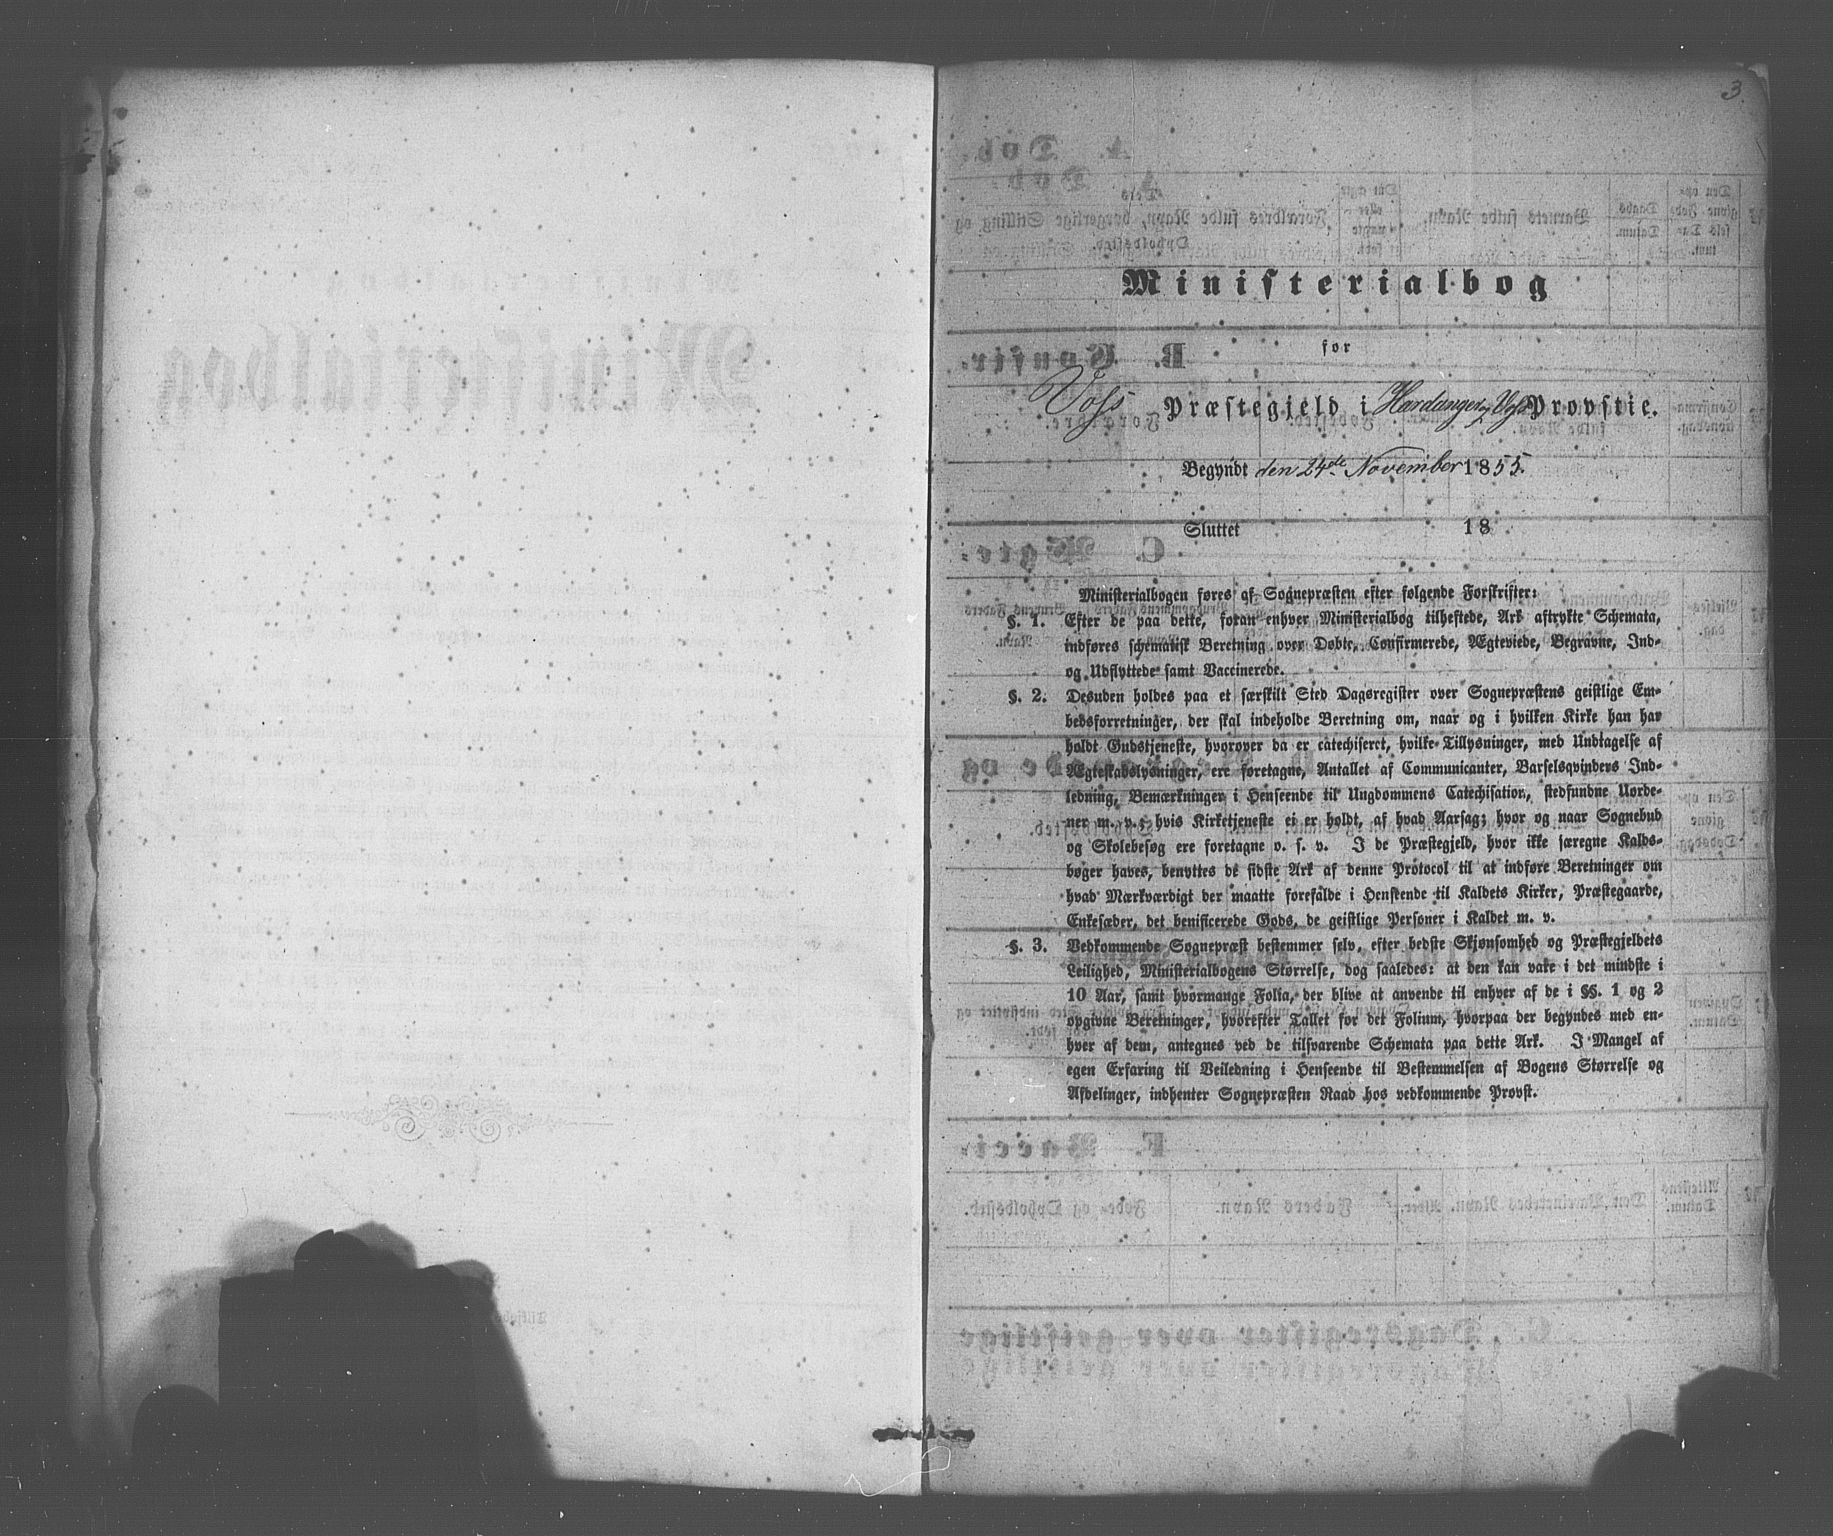 3.
Ministerialbog
for
Voss Præstegjeld i Hardanger og Voss Provstie.
Begyndt den 24de November 1855.
Sluttet 18
Ministerialbogen føres af Sognepræsten efter følgende Forskrifter:
§. 1. Efter de paa dette, foran enhver Ministerialbog tilheftede, Ark aftrykte Schemata,
indføres schematisk Beretning over Døbte, Confirmerede, Ægteviede, Begravne, Ind-
og Udflyttede samt Vaccinerede.
§. 2. Desuden holdes paa et særskilt Sted Dagsregister over Sognepræstens geistlige Em-
bedsforretninger, der skal indeholde Beretning om, naar og i hvilken Kirke han har
holdt Gudstjeneste, hvorover da er catechiseret, hvilke Tillysninger, med Undtagelse af
Ægteskabslysninger, ere foretagne, Antallet af Communicanter, Barselsqvinders Ind-
ledning, Bemærkninger i Henseende til Ungdommens Catechisation, stedfundne Uorde-
ner m. v.; hvis Kirketjeneste ei er holdt, af hvad Aarsag; hvor og naar Sognebud
og Skolebesøg ere foretagne o. s. v. I de Præstegjeld, hvor ikke særegne Kalds-
bøger haves, benyttes de sidste Ark af denne Protocol til at indføre Beretninger om
hvad Mærkværdigt der maatte forefalde i Henseende til Kaldets Kirker, Præstegaarde,
Enkesæder, det benificerede Gods, de geistlige Personer i Kaldet m. v.
§. 3. Vedkommende Sognepræst bestemmer selv, efter bedste Skjønsomhed og Præstegjeldets
Leilighed, Ministerialbogens Størrelse, dog saaledes: at den kan vare i det mindste i
10 Aar, samt hvormange Folia, der blive at anvende til enhver af de i §§. 1 og 2
opgivne Beretninger, hvorefter Tallet for det Folium, hvorpaa der begyndes med en-
hver af dem, antegnes ved de tilsvarende Schemata paa dette Ark. I Mangel af
egen Erfaring til Veiledning i Henseende til Bestemmelsen af Bogens Størrelse og
Afdelinger, indhenter Sognepræsten Raad hos vedkommende Provst.